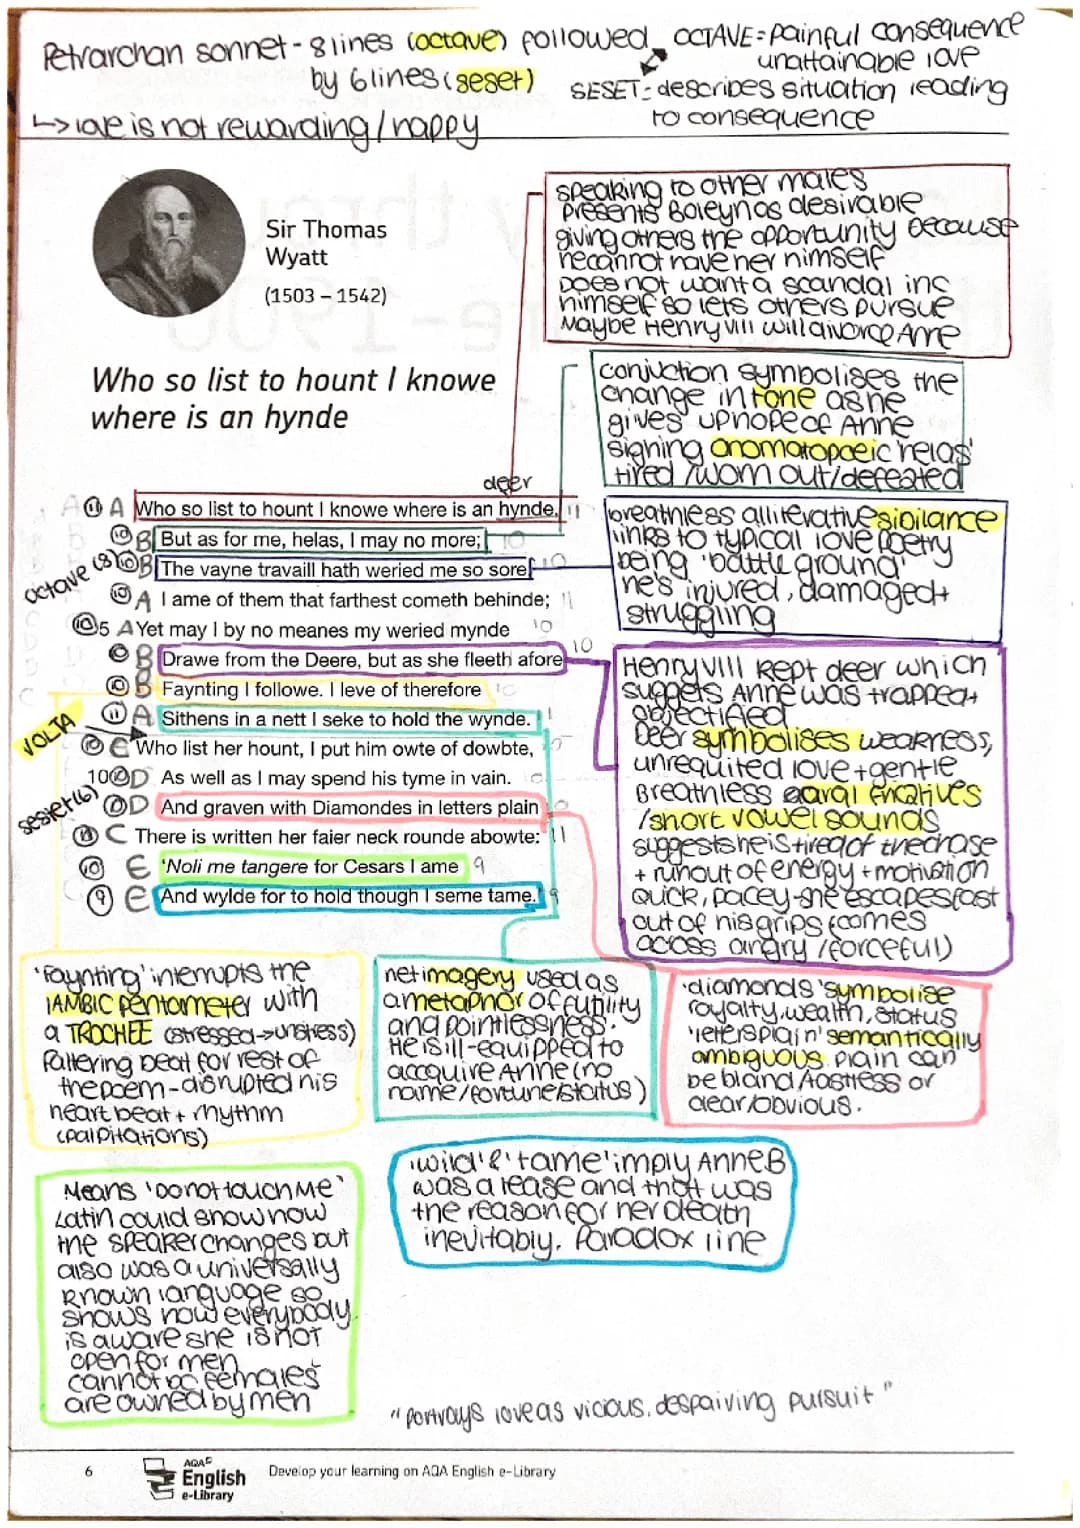 Petrarchan sonnet - 8 lines (octave) followed
by 6 lines (seset)
↳ love is not rewarding / happy
OCTAVE = painful consequence
unattainable love
SESET = describes situation leading
to consequence
Sir Thomas
Wyatt
(1503 – 1542)
speaking to other males
presents Boleyn as desirable
giving others the opportunity because
he cannot have her himself
Does not want a scandal inc
himself so lets others pursue
Maybe Henry VIII will divorce Anne
Who so list to hount I knowe
where is an hynde
conjuction symbolises the
change in tone as he
gives up hope of Anne
signing onomatopoeic 'helas'
tired / worn out / defeated
deer
A ⑪ A Who so list to hount I knowe where is an hynde, 11
⑩ B But as for me, helas, I may no more; 10
octave (8) ⑩ B The vayne travaill hath weried me so sore 10
⑩ A I ame of them that farthest cometh behinde; 11
⑩ 5 A Yet may I by no meanes my weried mynde 10
⑩ B Drawe from the Deere, but as she fleeth afore 10
⑩ B Faynting I followe. I leve of therefore 10
VOLTA ⑪ A Sithens in a nett I seke to hold the wynde. 11
⑩ C Who list her hount, I put him owte of dowbte, 10
10 ⑩ D As well as I may spend his tyme in vain. 10
seset (6) ⑩ D And graven with Diamondes in letters plain 10
⑪ C There is written her faier neck rounde abowte: 11
⑩ E 'Noli me tangere for Cesars I ame 9
⑨ E And wylde for to hold though I seme tame.' 9
breathless alliterative sibilance
links to typical love poetry
being 'battle ground'
he's injured, damaged +
struggling
Henry VIII kept deer which
suggests Anne was trapped +
objectified
Deer symbolises weakness,
unrequited love + gentle
Breathless aural fricatives
/ short vowel sounds
suggests he is tired of the chase
+ run out of energy + motivation
Quick, pacey - she escapes fast
out of his grips (comes
across angry / forceful)
'Faynting' interrupts the
IAMBIC PENTAMETER with
a TROCHEE (stressed → unstress)
Faltering beat for rest of
the poem - disrupted his
heart beat + rhythm
(palpitations)
net imagery used as
a metaphor of futility
and pointlessness.
He is ill-equipped to
accquire Anne (no
name / fortune / status)
'diamonds' symbolise
royalty, wealth, status
'letters plain' semantically
ambiguous. plain can
be bland / or
clear / obvious.
Means 'Do not touch Me'
Latin could show how
the speaker changes but
also was a universally
known language so
shows how everybody
is aware she is not
open for men
cannot bc females
are owned by men
'wild' & 'tame' imply Anne B
was a tease and that was
the reason for her death
inevitably. Paradox line
"portrays love as vicious, despairing pursuit"
6
AQA
English
e-Library
Develop your learning on AQA English e-Library